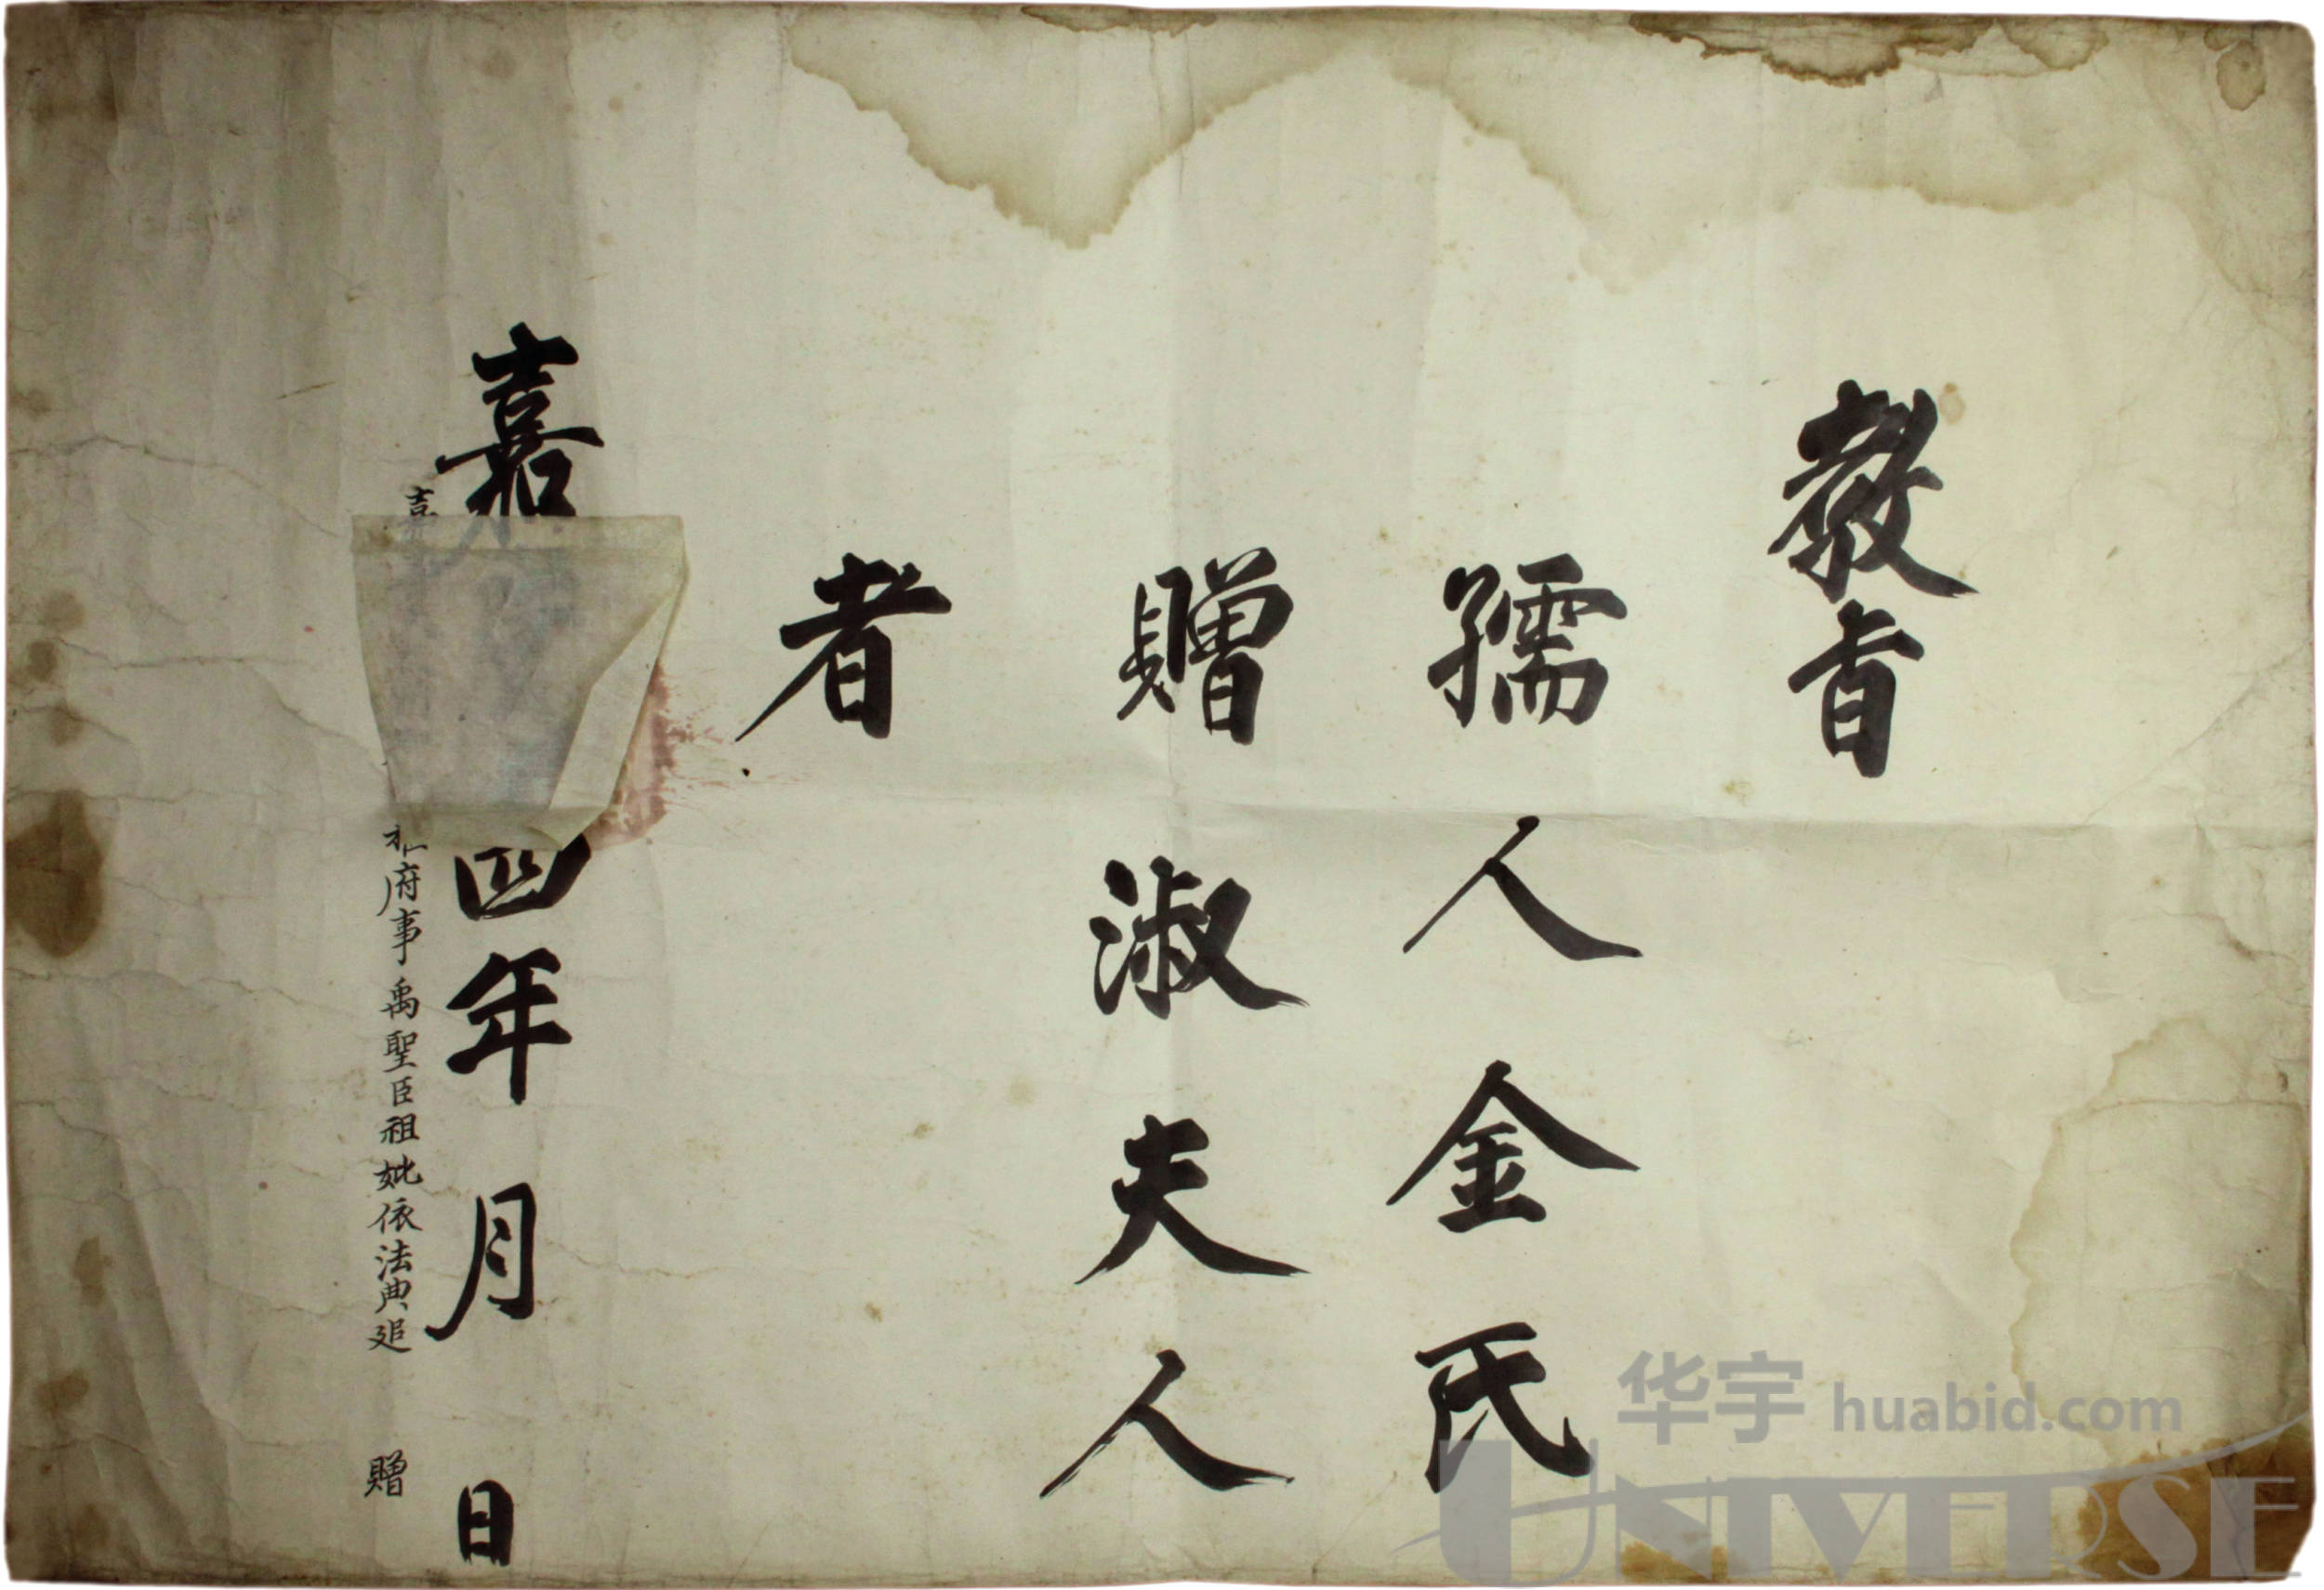 教旨
孺人金氏
贈淑夫人
者
嘉 四年月日
嘉 府事禹聖臣祖妣依法典追 贈
华宇 huabid.com
UNIVERSE